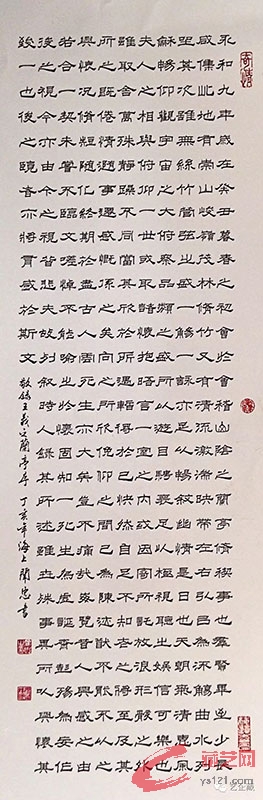 永和九年歲在癸丑暮春之初會於會稽山陰之蘭亭脩稧事也羣賢畢至少長
咸集此地有崇山峻嶺茂林脩竹又有清流激湍映帶左右引以為流觴曲水列
坐其次雖無絲竹管弦之盛一觴一詠亦足以暢敘幽情是日也天朗氣清惠風
龢暢仰觀宇宙之大俯察品類之盛所以遊目騁懷足以極視聽之娛信可樂也
夫人之相與俯仰一世或取諸懷抱晤言一室之內或因寄所託放浪形骸之外
雖取舍萬殊靜躁不同當其欣於所遇暫得於己快然自足不知老之將至及其
所之既倦情隨事遷感慨係之矣向之所欣俛仰之間已為陳迹猶不能不以之
興懷況脩短隨化終期於盡古人云死生亦大矣豈不痛哉每覽昔人興感之由
若合一契未嘗不臨文嗟悼不能喻之於懷固知一死生為虛誕齊彭殤為妄作
後之視今亦由今之視昔悲夫故列敘時人錄其所述雖世殊事異所以興懷其
致一也後之覽者亦將有感於斯文
敬錄王羲之蘭亭序 丁亥年海上蘭書
艺企藏
ys121.com